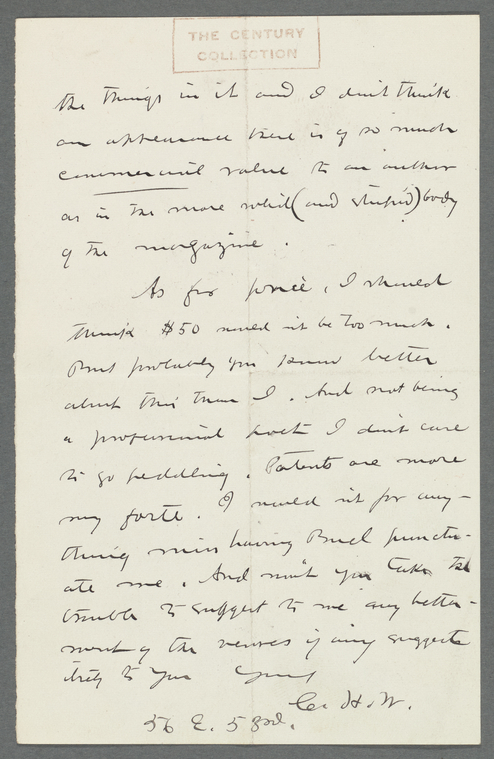 THE CENTURY
COLLECTION
the things in it and I don't think
an appearance there is of so much
commercial value to an author
as in the more solid (and stupid) body
of the magazine.
As for price, I should
think $50 would not be too much.
But probably you know better
about this than I. And not being
a professional poet I don't care
to go peddling. Patents are more
my forte. I would it for any-
thing miss having Buel punctu-
ate me. And won't you take the
trouble to suggest to me any better-
ment of the verses if any suggests
itself to you Yours
C. H. W.
56 E. 53rd.